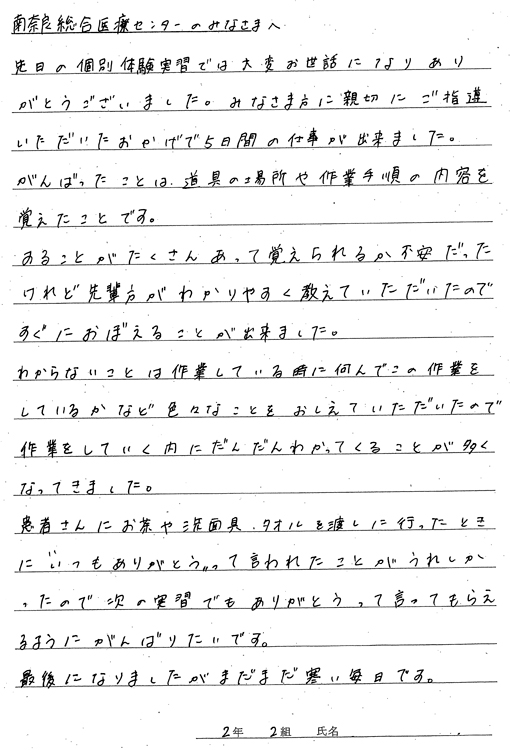 南奈良総合医療センターのみなさまへ
先日の個別体験実習では大変お世話になりあり
がとうございました。みなさま方に親切にご指導
いただいたおかげで5日間の仕事が出来ました。
がんばったことは、道具の場所や作業手順の内容を
覚えたことです。
することがたくさんあって覚えられるか不安だった
けれど先輩方がわかりやすく教えていただいたので
すぐにおぼえることが出来ました。
わからないことは作業している時に何んでこの作業を
しているかなど色々なことをおしえていただいたので
作業をしていく内にだんだんわかってくることが多く
なってきました。
患者さんにお茶や洗面具、タオルを渡しに行ったとき
に"いつもありがとう"って言われたことがうれしか
ったので次の実習でもありがとうって言ってもらえ
るようにがんばりたいです。
最後になりましたがまだまだ寒い毎日です。
2年 2組 氏名